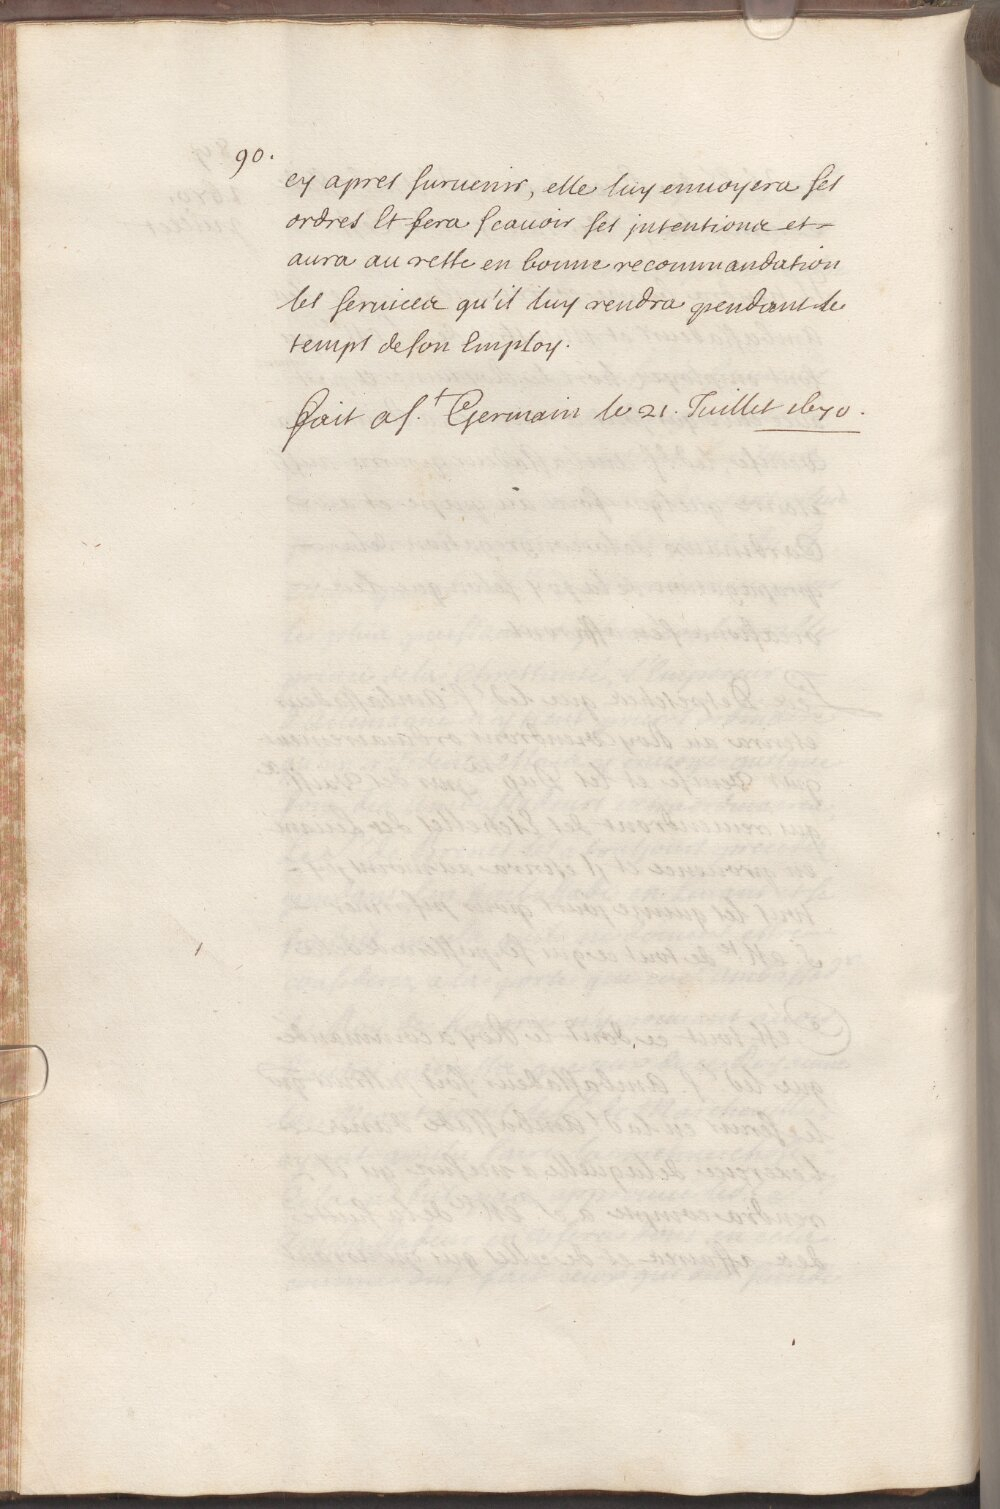 90.
cy apres suruenir, elle luy enuoyera ses
ordres Et fera scauoir ses jntentions et
aura au reste en bonne recommandation
les seruices qu'il luy rendra pendant le
temps de son Employ.
fait a s.t Germain le 21. Juillet 1670.